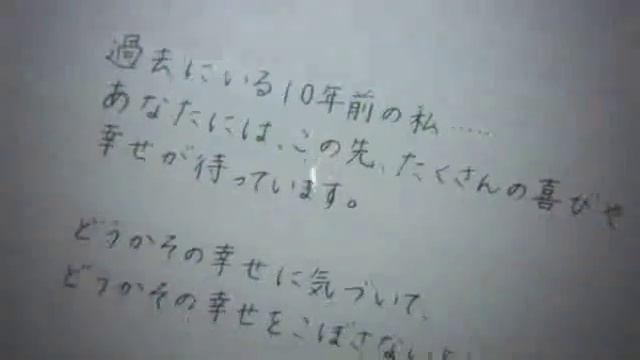 過去にいる10年前の私……
あなたには、この先、たくさんの喜びや
幸せが待っています。
どうかその幸せに気づいて、
どうかその幸せをこぼさない